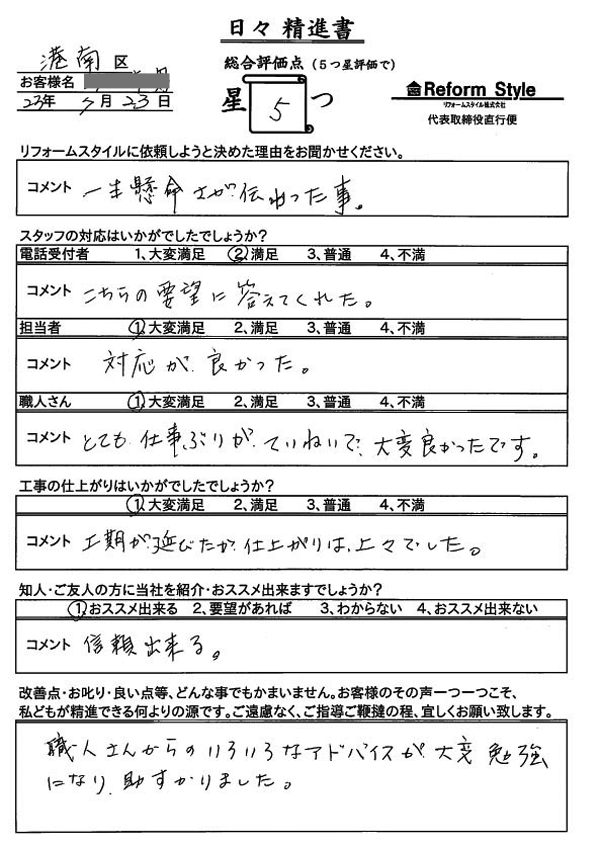 日々 精進書
港南区
総合評価点（５つ星評価で）
お客様名
23年 月 23日
星 5 つ
Reform Style
リフォームスタイル株式会社
代表取締役直行便
リフォームスタイルに依頼しようと決めた理由をお聞かせください。
コメント 一生懸命さが伝わった事。
スタッフの対応はいかがでしたでしょうか？
電話受付者 1、大変満足 ②満足 3、普通 4、不満
コメント こちらの要望に答えてくれた。
担当者 ①大変満足 2、満足 3、普通 4、不満
コメント 対応が良かった。
職人さん ①大変満足 2、満足 3、普通 4、不満
コメント とても仕事ぶりがていねいで、大変良かったです。
工事の仕上がりはいかがでしたでしょうか？
①大変満足 2、満足 3、普通 4、不満
コメント 工期が延びたが仕上がりは、上々でした。
知人・ご友人の方に当社を紹介・おススメ出来ますでしょうか？
①おススメ出来る 2、要望があれば 3、わからない 4、おススメ出来ない
コメント 信頼出来る。
改善点・お叱り・良い点等、どんな事でもかまいません。お客様のその声一つ一つこそ、
私どもが精進できる何よりの源です。ご遠慮なく、ご指導ご鞭撻の程、宜しくお願い致します。
職人さんからのいろいろなアドバイスが大変勉強
になり、助すかりました。